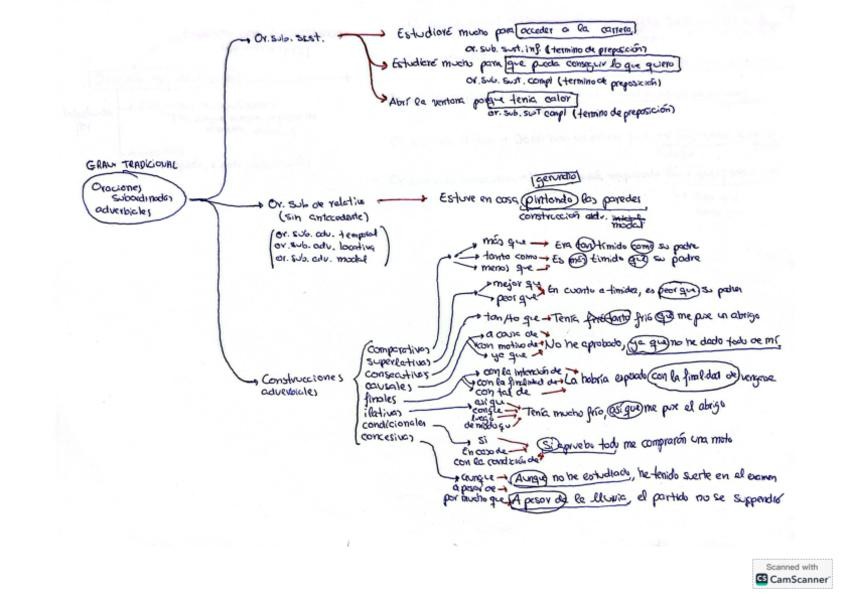 GRAM TRADICIONAL
Oraciones
subordinadas
adverbiales
Or. sub. sust.
Estudiaré mucho para acceder a la carrera
or. sub. sust. inf (termino de preposición)
Estudiaré mucho para que pueda conseguir lo que quiero
or. sub. sust. compl (termino de preposición)
Abrí la ventana porque tenía calor
or. sub. sust compl (termino de preposición)
Or. sub de relativo
(sin antecedente)
(or. sub. adv. temporal
or. sub. adv. locativa
or. sub. adv. modal)
gerundio
Estuve en casa pintando las paredes
construcción adv.
modal
Construcciones
adverbiales
comparativas
superlativas
consecutivas
causales
finales
ilativas
condicionales
concesivas
más que
Era tan tímido como su padre
tanto como
Es más timido que su padre
menos que
mejor que
peor que
En cuanto a timidez, es peor que su padre
tan/to que
Tenía tanto frío que me puse un abrigo
a causa de
con motivo de
ya que
No he aprobado, ya que no he dado todo de mí
con la intención de
con la finalidad de
con tal de
La habría esperado con la finalidad de vengarse
así que
luego
de modo qu
Tenía mucho frío, así que me puse el abrigo
Si
En caso de
con la condición de
Si apruebo todo me comprarán una moto
Aunque
a pesar de
por mucho que
Aunque no he estudiado, he tenido suerte en el examen
A pesar de la lluvia, el partido no se suspendió
Scanned with
CS CamScanner